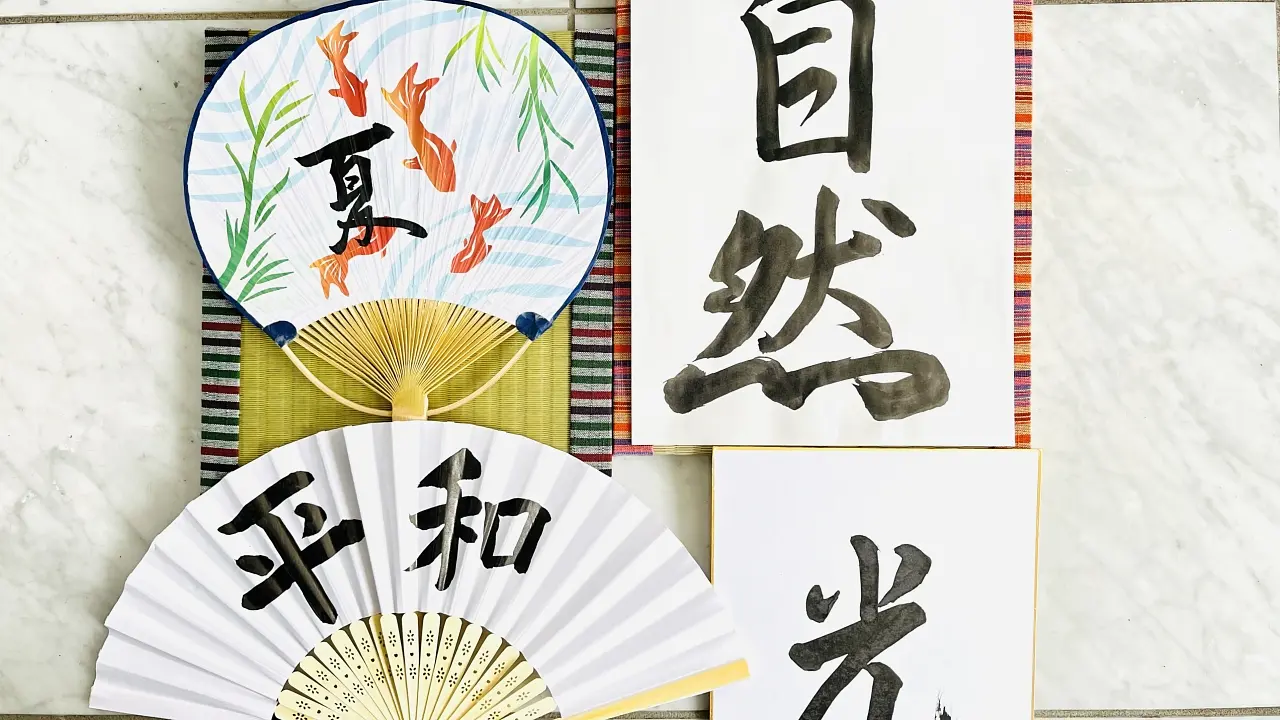 夏
自然
平和
光